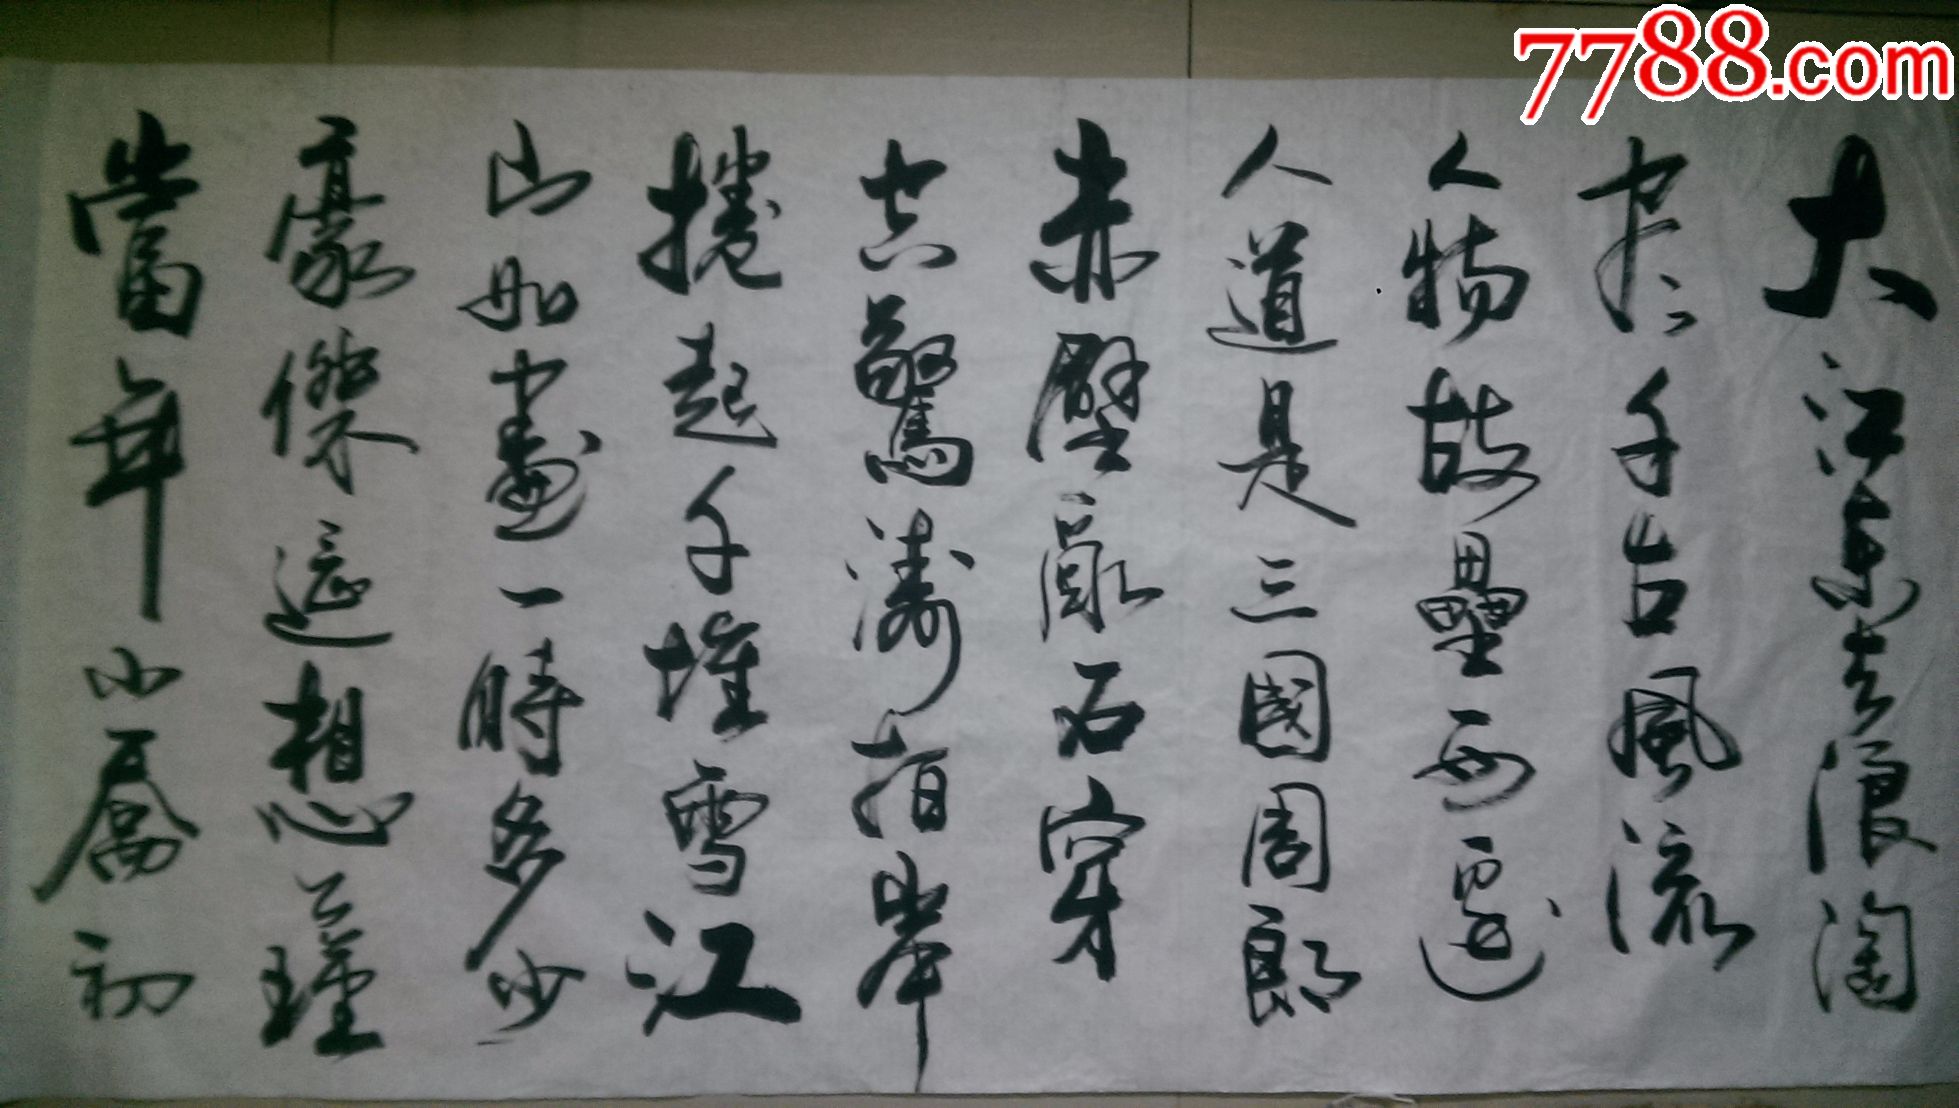 7788.com
大江東去浪淘
尽千古風流
人物故壘西邊
人道是三國周郎
赤壁亂石穿
空驚濤拍岸
捲起千堆雪江
山如畫一時多少
豪傑遥想公瑾
當年小喬初